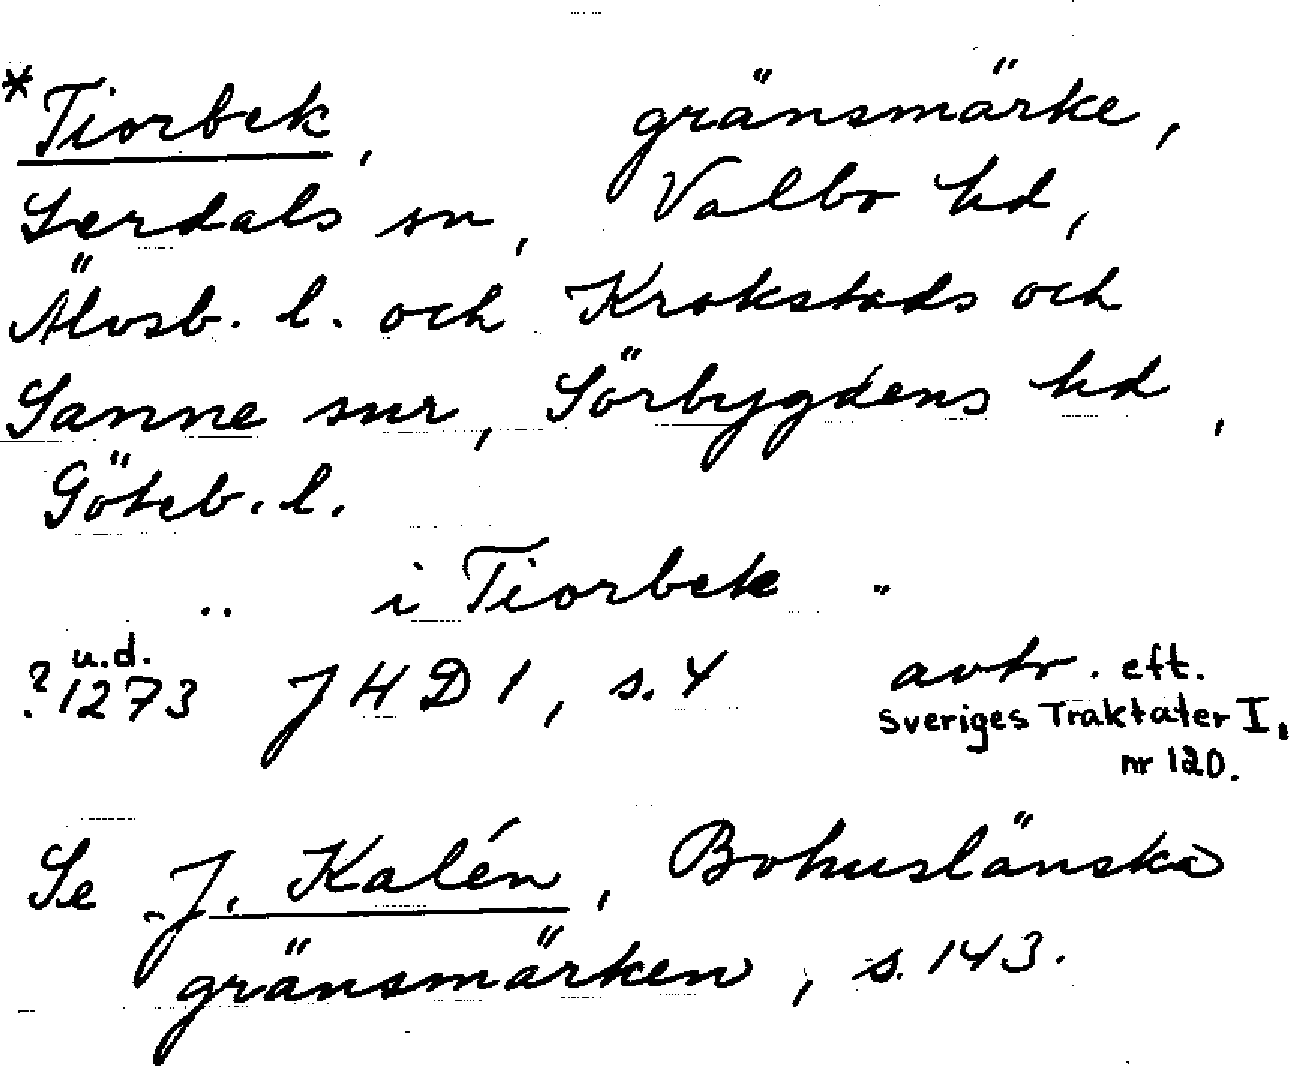 *Tiorbek, gränsmärke,
Serdals sn, Valbo hd,
Älvsb. l. och Krokstads och
Sanne snr, Sörbygdens hd,
Göteb. l.
.. i Tiorbek "
? u.d.
1273 JHD 1, s. 4 avtr. eft.
Sveriges Traktater I,
nr 120.
Se J. Kalén, Bohuslänska
gränsmärken, s. 143.